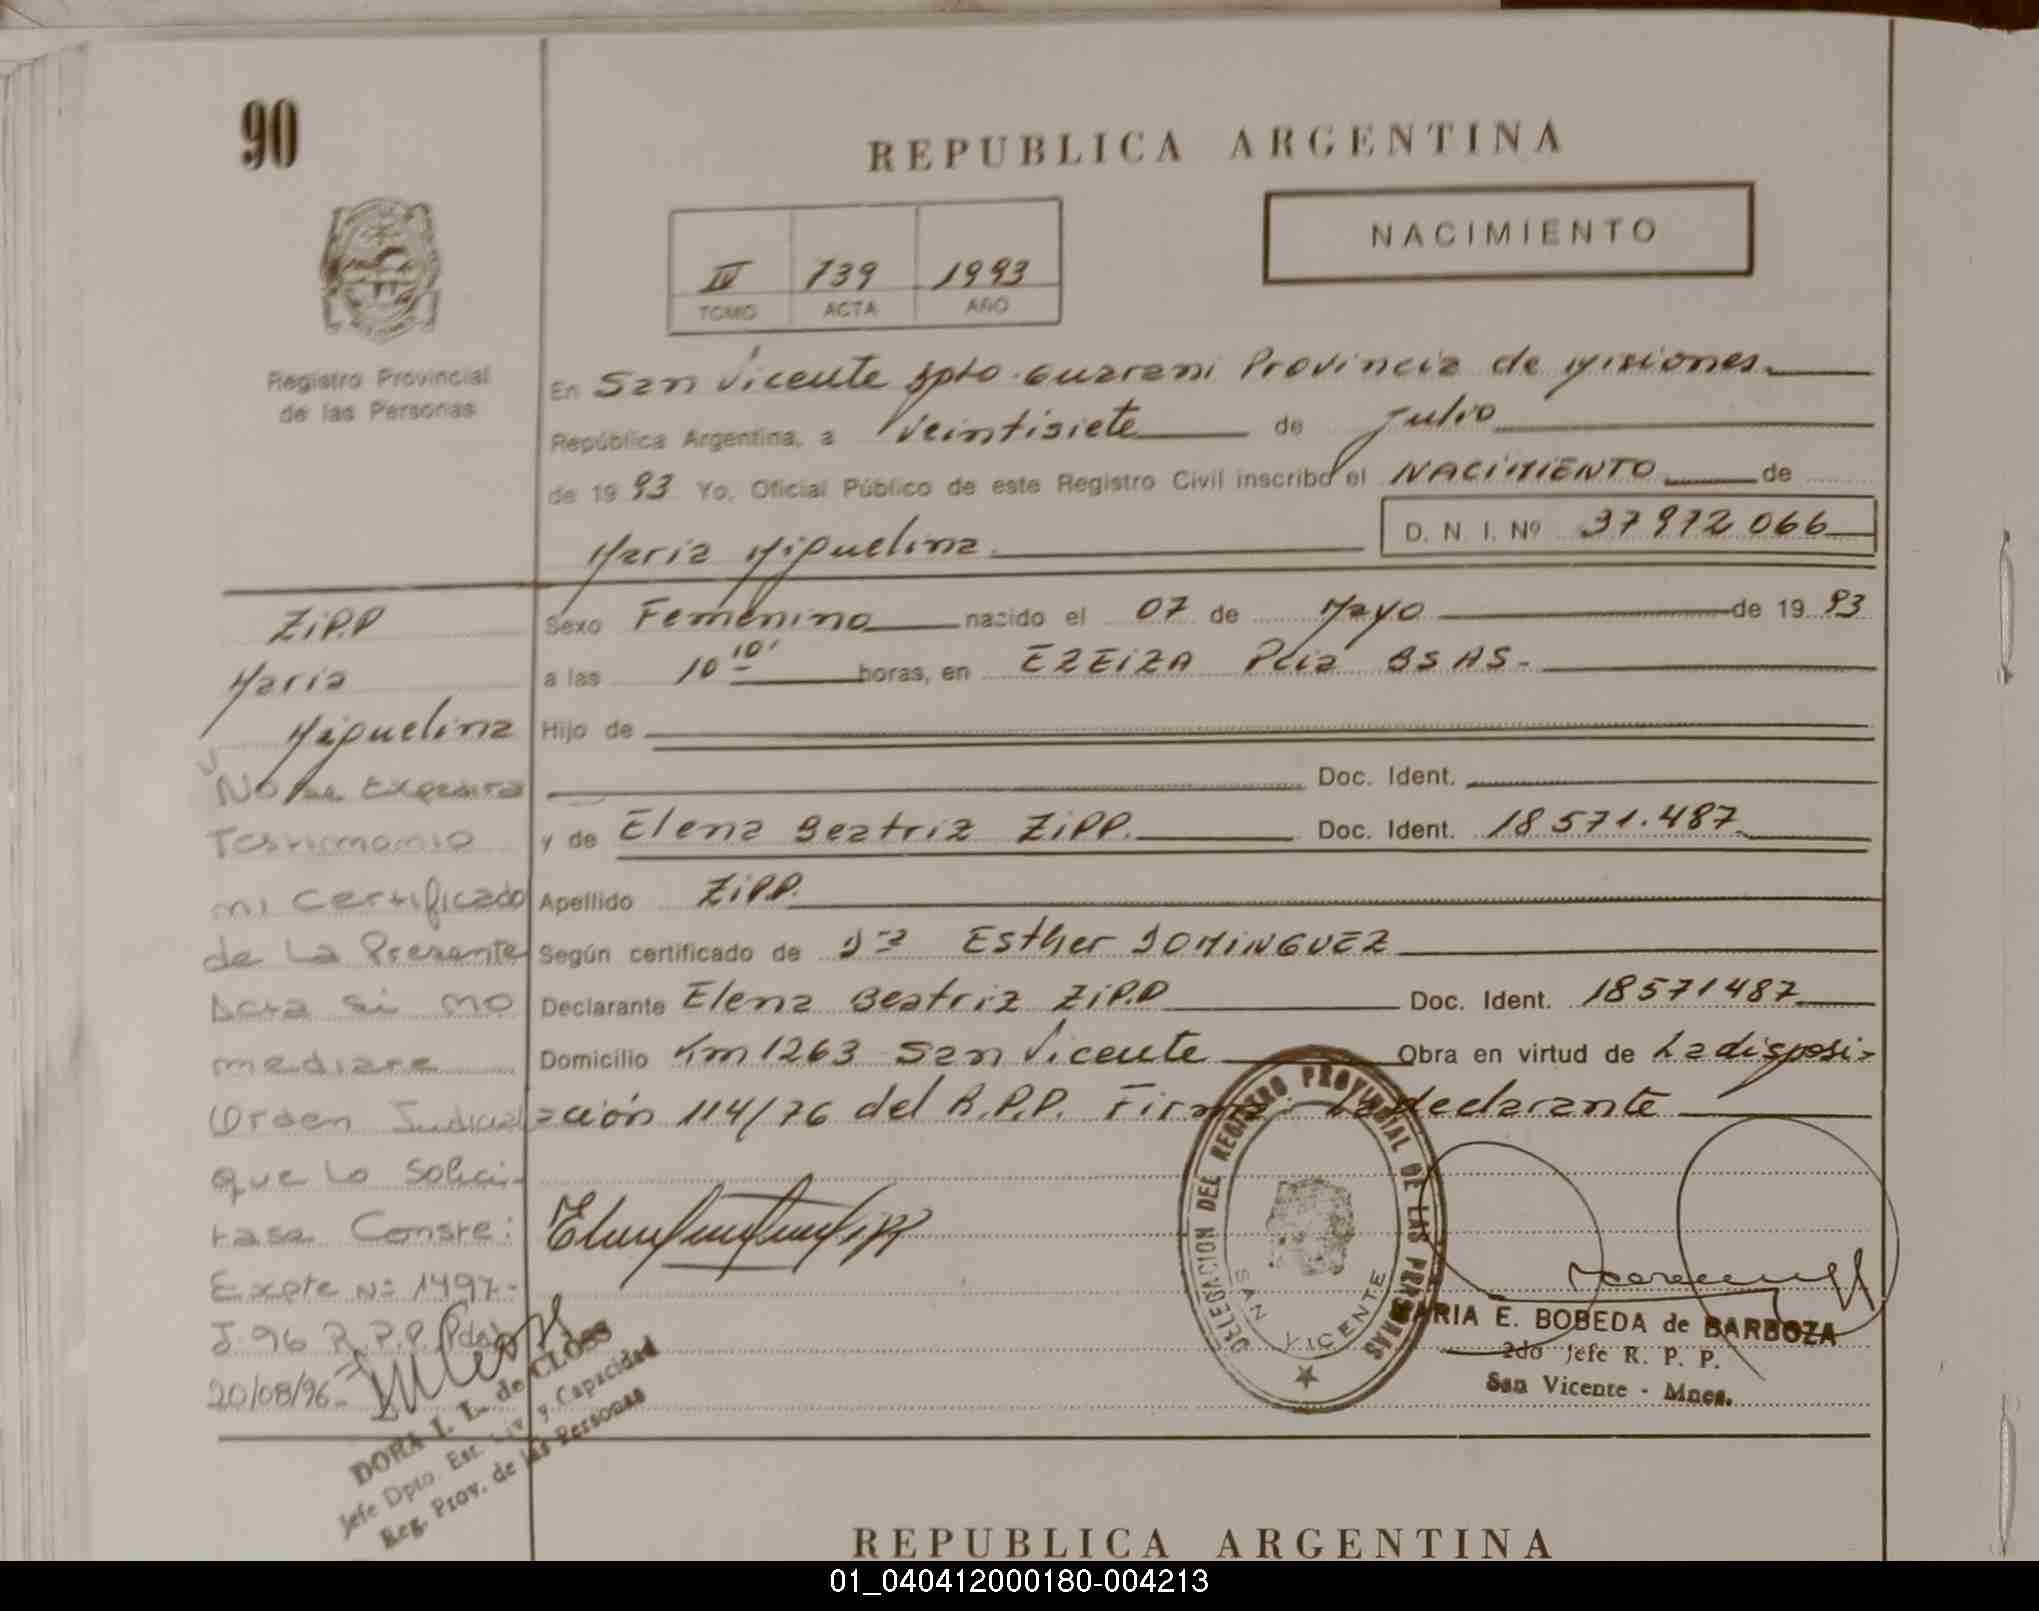 90
REPUBLICA ARGENTINA
NACIMIENTO
IV 739 1993
TOMO ACTA AÑO
Registro Provincial
de las Personas
En San Vicente Dpto. Guarani Provincia de Misiones.
República Argentina, a Veintisiete de Julio
de 19 93 Yo, Oficial Público de este Registro Civil inscribo el NACIMIENTO de
Maria Miguelina D. N. I. Nº 37972066
ZiPP
Maria
Miguelina
Sexo Femenino nacido el 07 de Mayo de 19 93
a las 10 10' horas, en EZEIZA Pcia BS AS.
Hijo de
Doc. Ident.
y de Elena Beatriz ZiPP. Doc. Ident. 18571.487
Apellido ZiPP.
Según certificado de Dra Esther DOMINGUEZ
Declarante Elena Beatriz ZiPP Doc. Ident. 18571487
Domicilio Km 1263 San Vicente Obra en virtud de La disposi-
ción 114/76 del R.P.P. Firma: La declarante
No se Expedira
Testimonio
ni Certificado
de La Presente
Acta si no
mediare
Orden Judicial
que Lo Solici-
tase Conste:
Expte Nº 1497-
J-96 R.P.P. Pdas
20/08/96-
DORA I. L. de CLOSS
Jefe Dpto. Est. Civ. y Capacidad
Reg. Prov. de las Personas
DELEGACION DEL REGISTRO PROVINCIAL DE LAS PERSONAS
SAN VICENTE
MARIA E. BOBEDA de BARBOZA
2do Jefe R. P. P.
San Vicente - Mnes.
REPUBLICA ARGENTINA
01_040412000180-004213